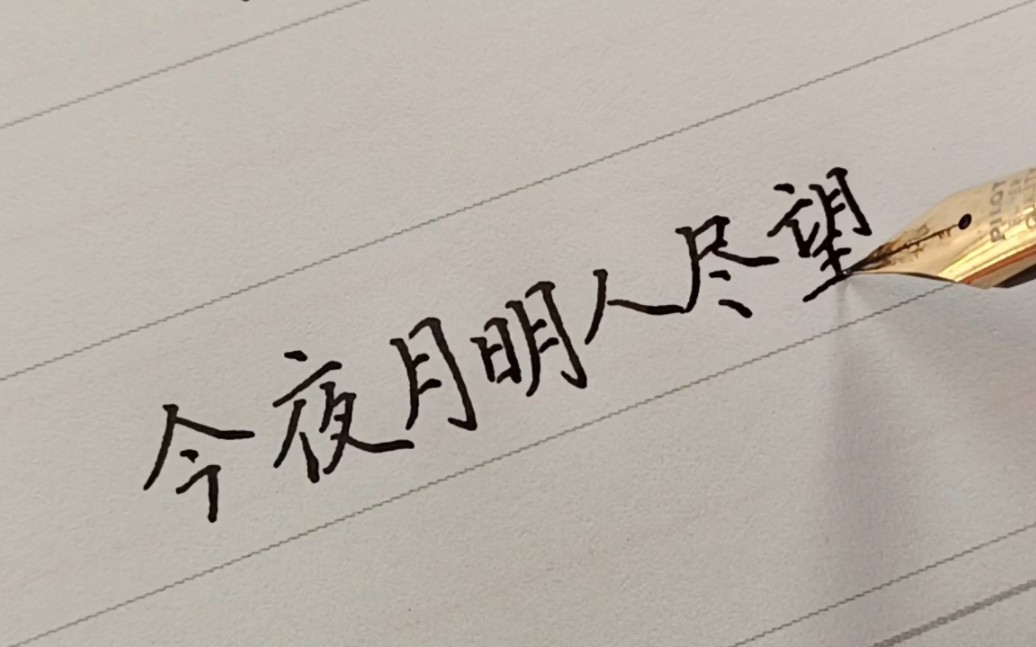 今夜月明人尽望
PILOT